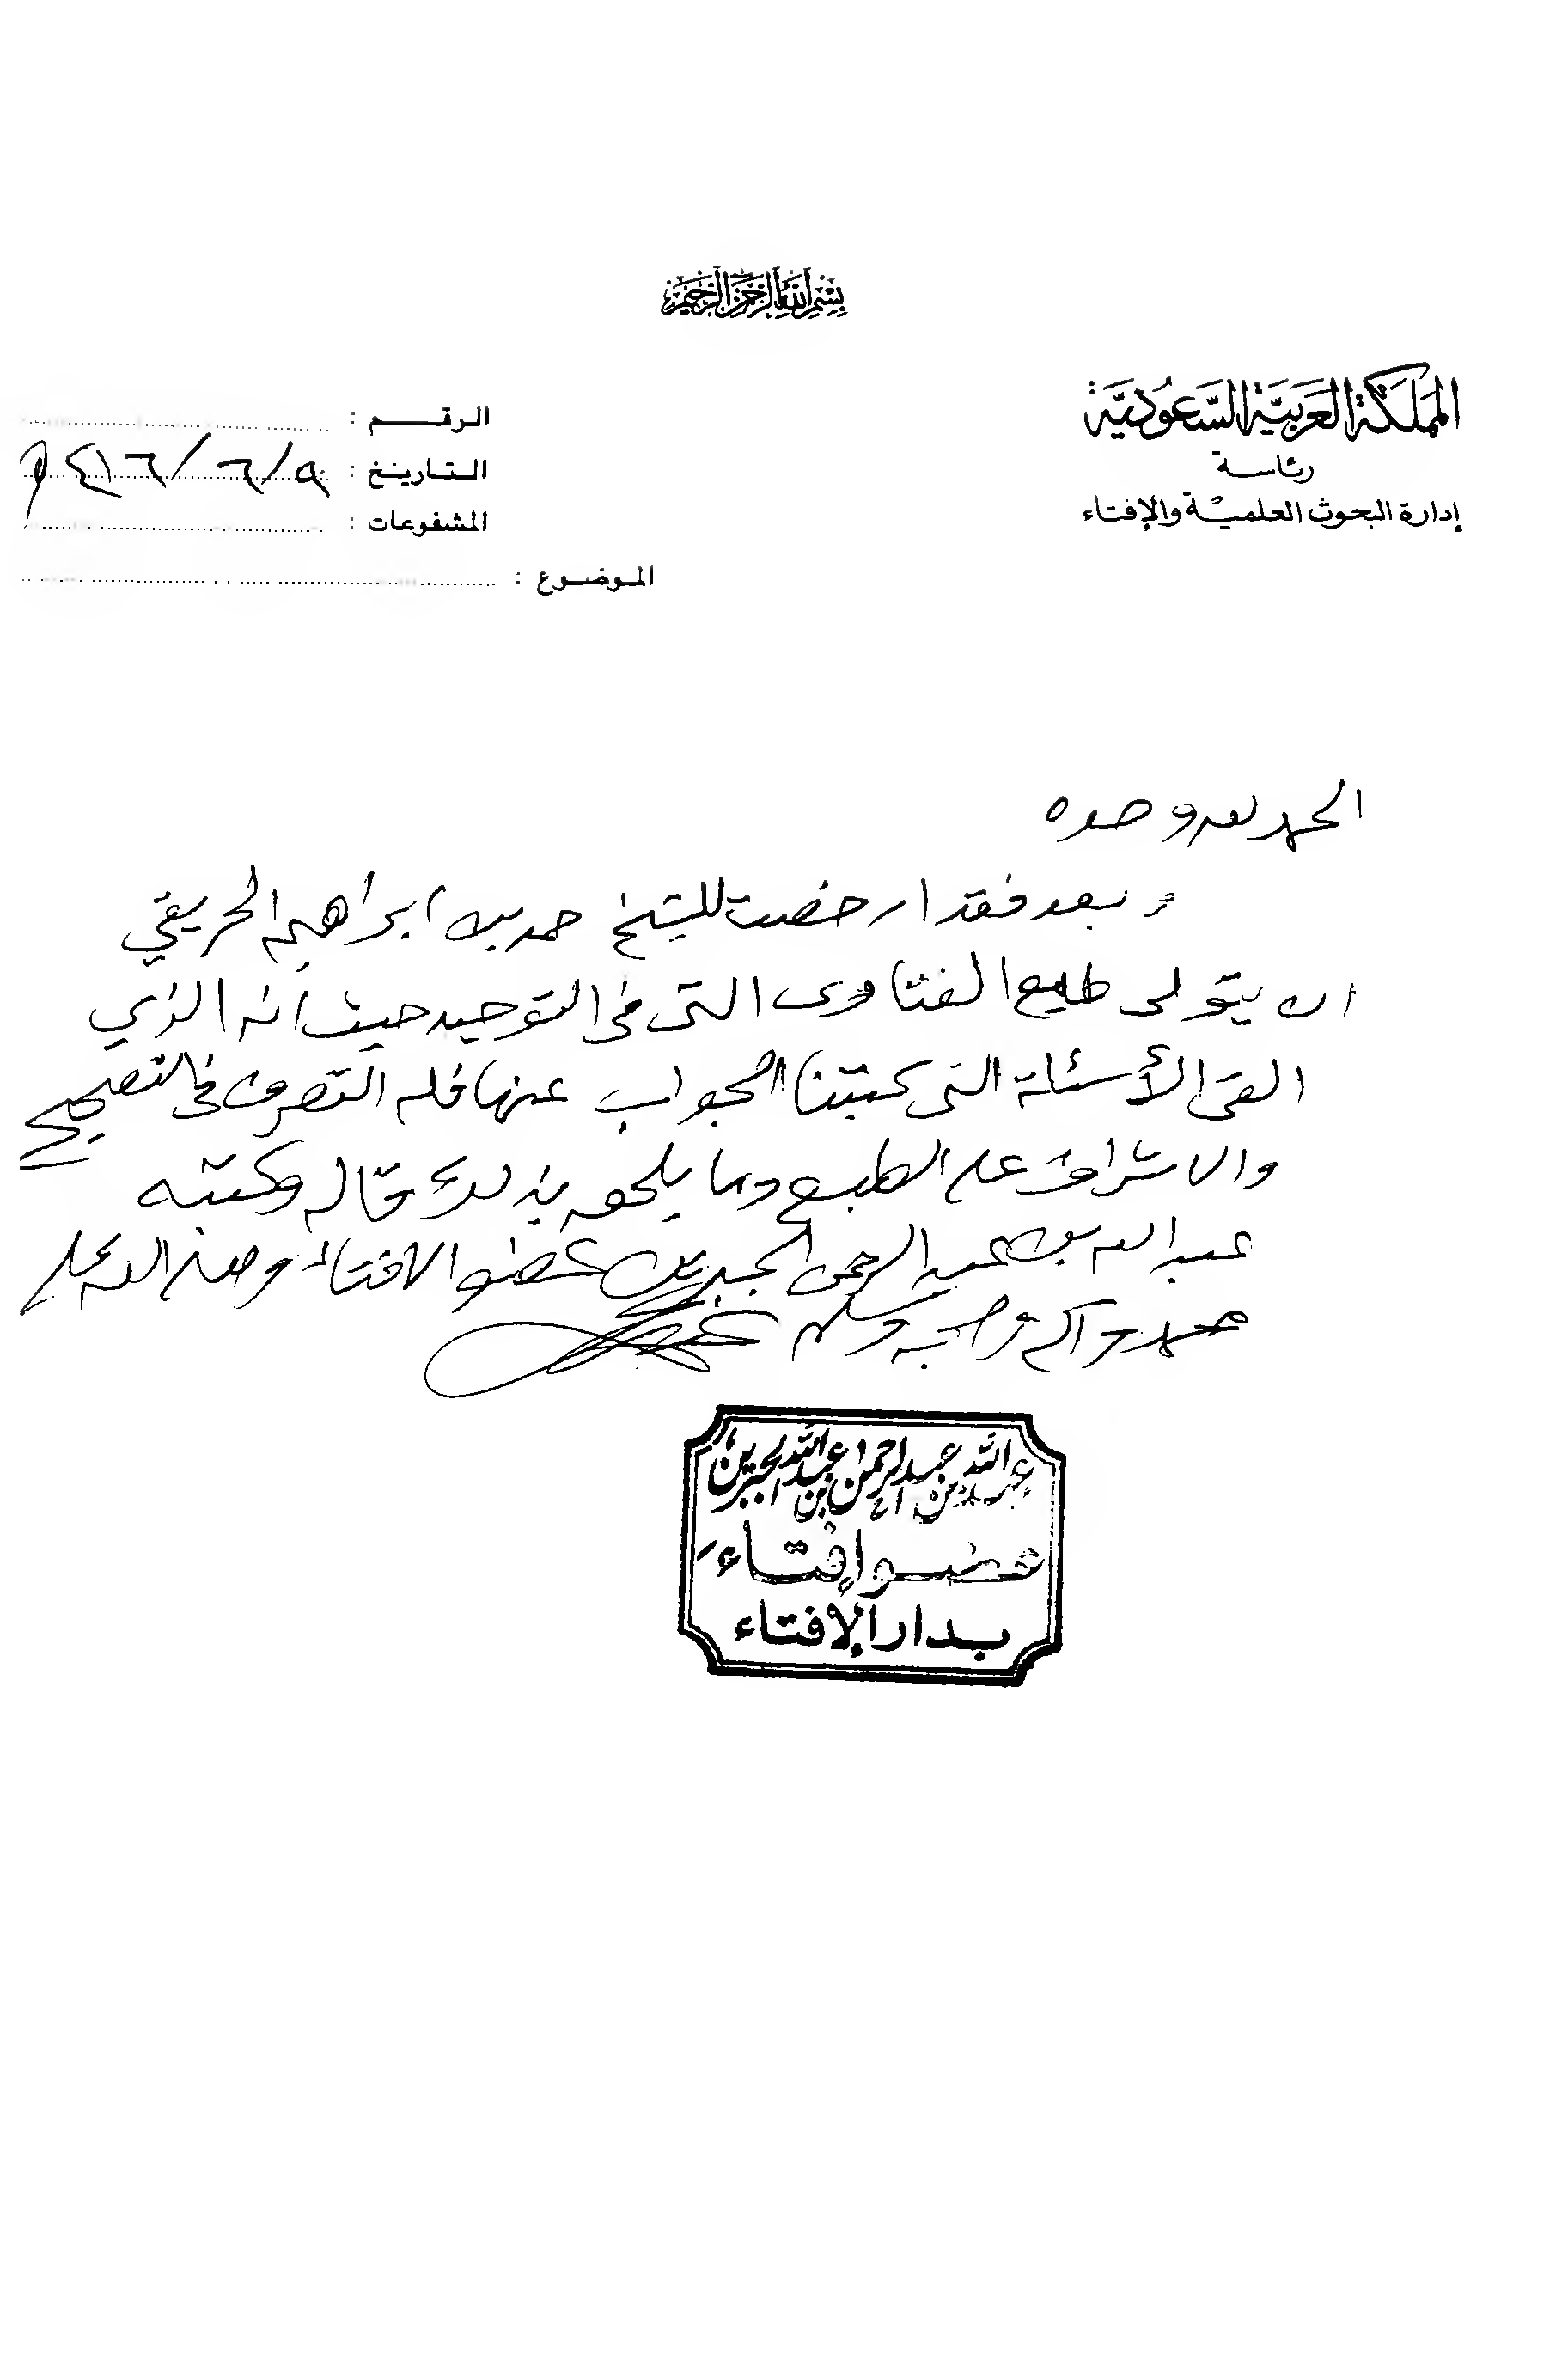 بسم الله الرحمن الرحيم
المملكة العربية السعودية
رئاسة
إدارة البحوث العلمية والإفتاء
الرقم :
التاريخ : ٩/٦/٤١٦ ١هـ
المشفوعات :
الموضوع :
الحمد لله وحده
وبعد فقد ارخصت للشيخ حمد بن ابراهيم الحريقي
ان يتولى طبع الفتاوى التي في التوحيد حيث أنه الذي
القى الأسئلة التي كتبنا الجواب عنها فله التصرف في التصحيح
والاشراف على الطبع وما يلحق بذلك قاله وكتبه
عبد الله بن عبد الرحمن الجبرين عضو الافتاء وصلى الله على
محمد وآله وصحبه وسلم
عبدالله بن عبدالرحمن بن عبدالله الجبرين
عضو إفتاء
بدار الإفتاء